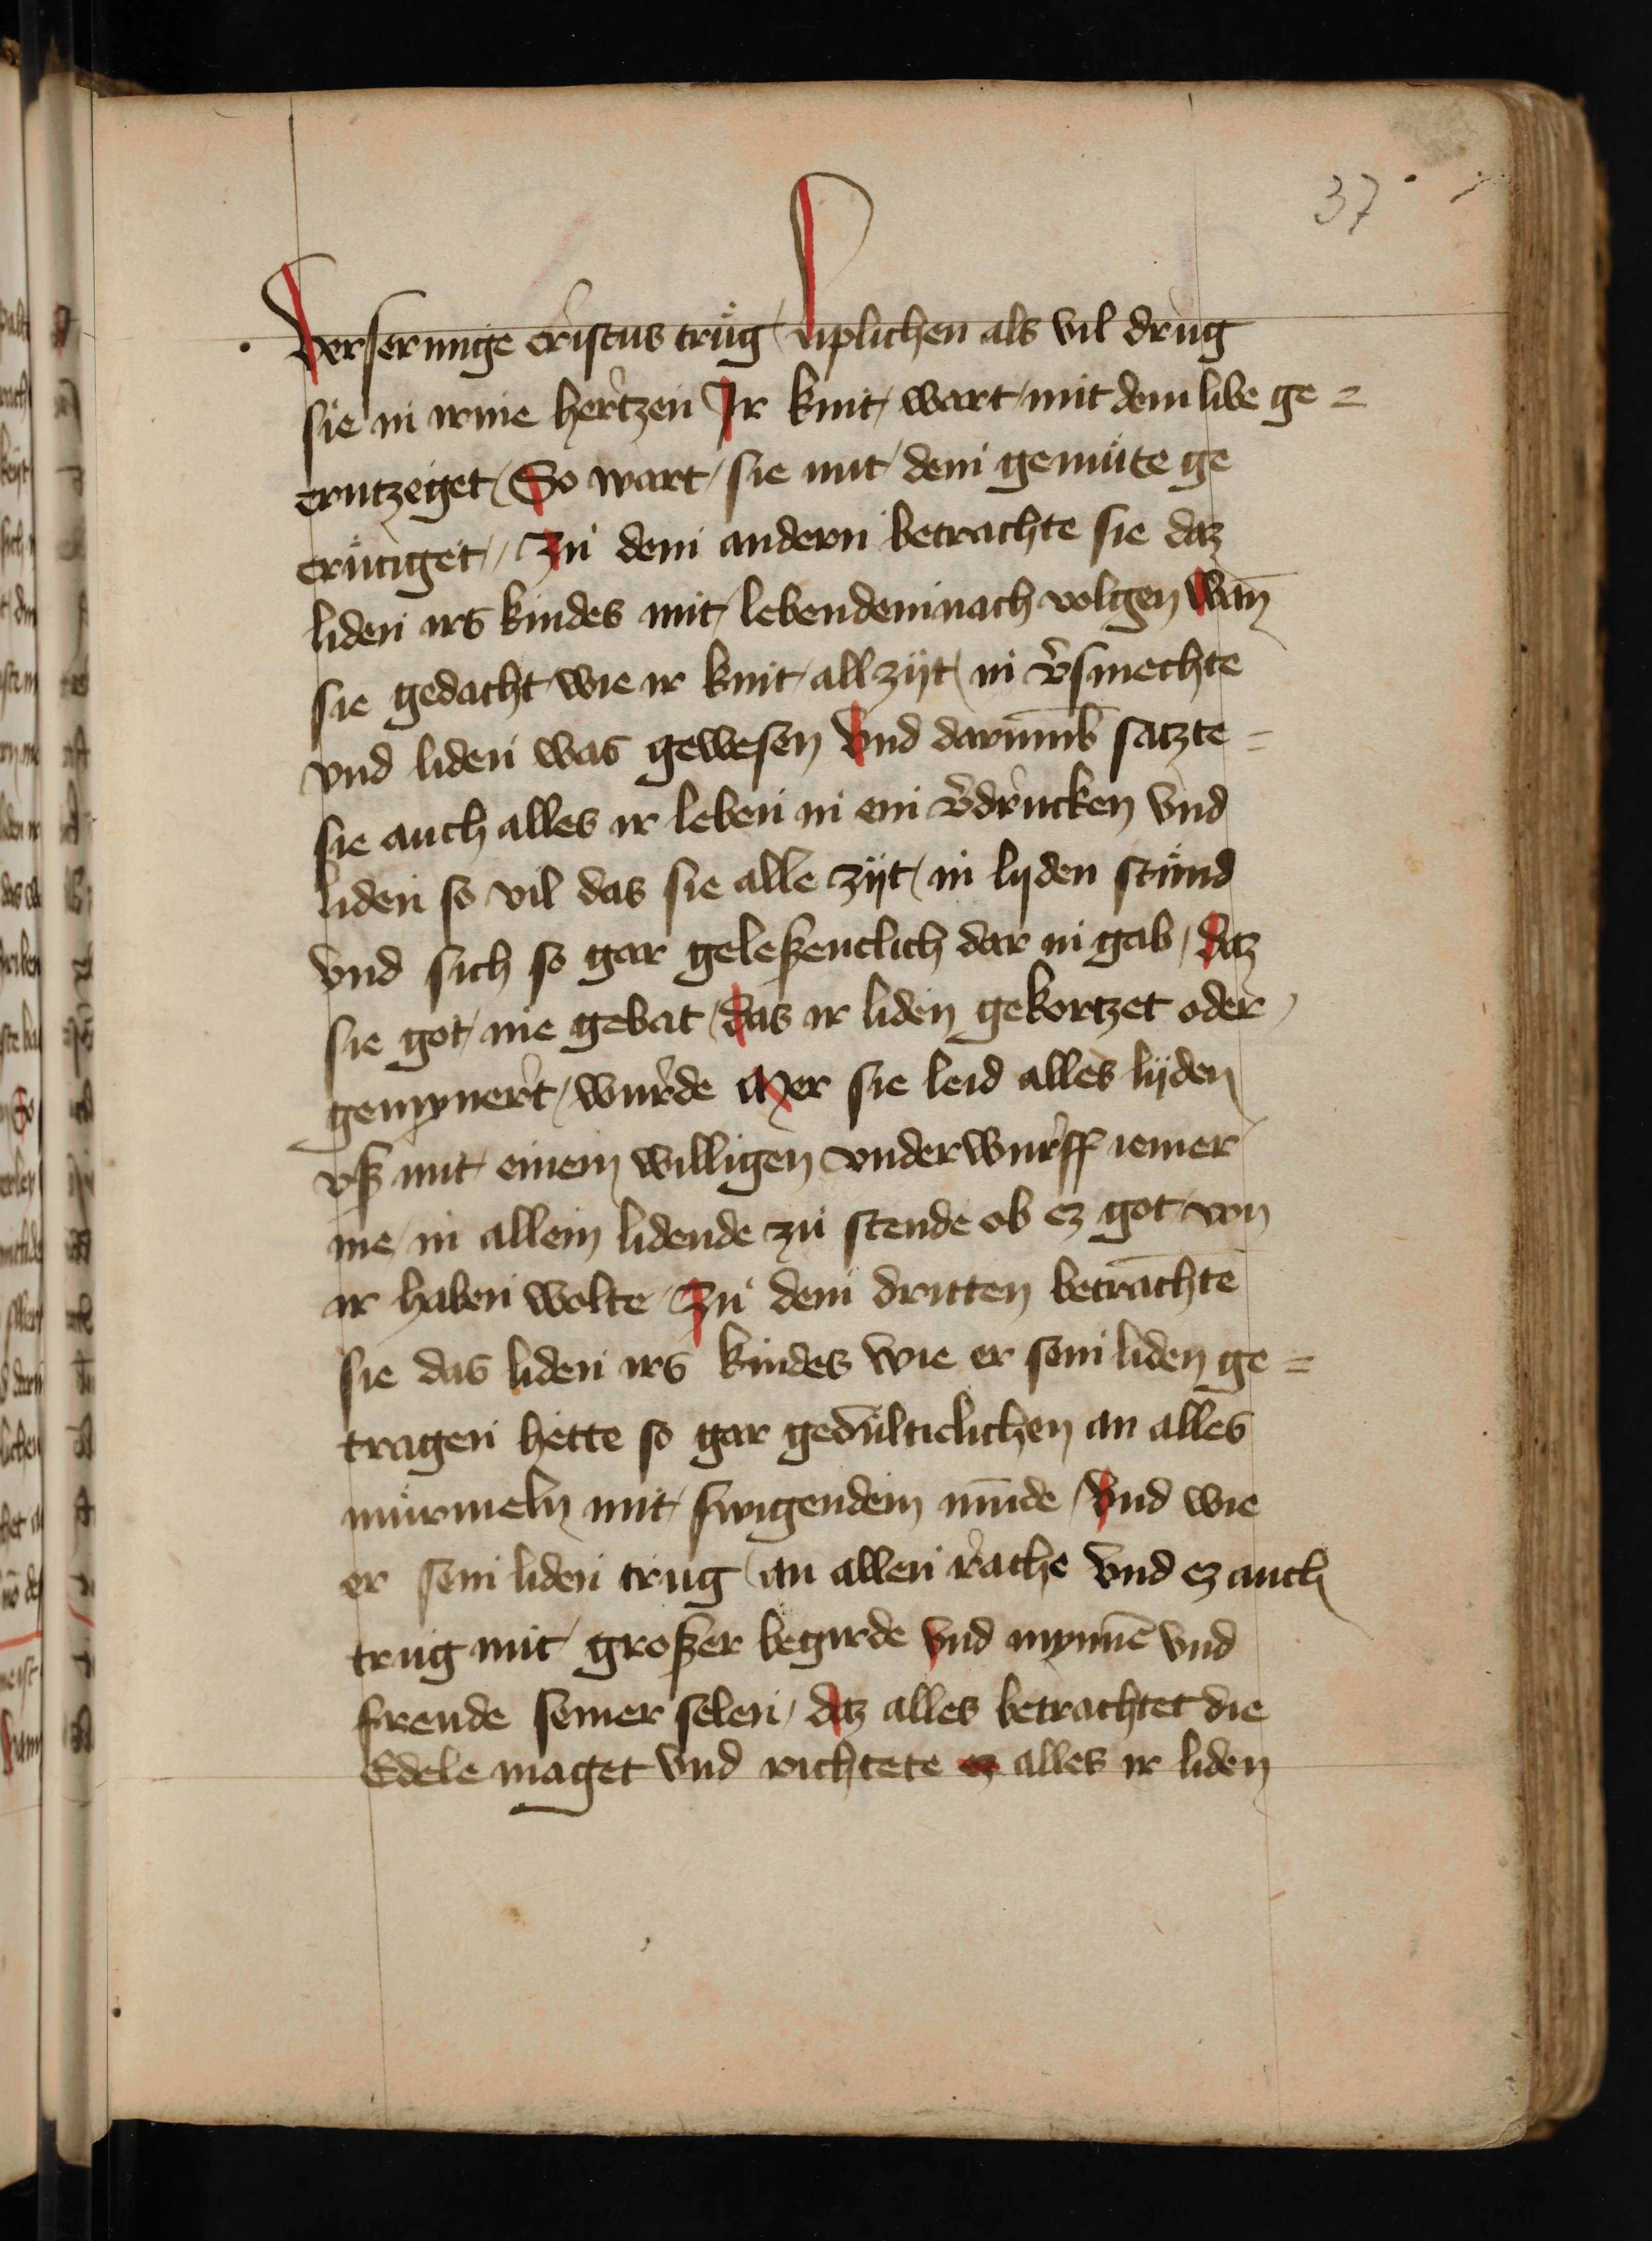 37
Versernnge cristus trůg liplichen als vil drůg
sie in irme hertzen Jr kint wart mit dem libe ge=
crutzeget So wart sie mit dem gemůte ge
crútiget Zů dem andern betrachte sie daz
liden irs kindes mit lebendem nach volgen wañ
sie gedacht wie ir kint all zijt in v̄smechte
vnd liden was gewesen Vnd darūmb satzte=
sie auch alles ir leben in ein v̄drucken vnd
liden so vil das sie alle zijt in lijden stůnd
vnd sich so gar geleßenclich dar in gab daz
sie got nie gebat das ir liden gekortzet oder
gemynert wurde Mer sie leid alles lijden
vß mit einem willigen vnderwurff iemer
me in allem lidende zů stende ob ez got von
ir haben wolte Zů dem dritten betrachte
sie das liden irs kindes wie er sein liden ge=
tragen hette so gar gedulticlichen an alles
můrmeln mit swigendem mūnde Vnd wie
er sein liden trug an allen rache vnd ez auch
trug mit großer begirde vnd mynne vnd
freude seiner selen daz alles betrachtet die
Edele maget vnd richtete ez alles ir liden